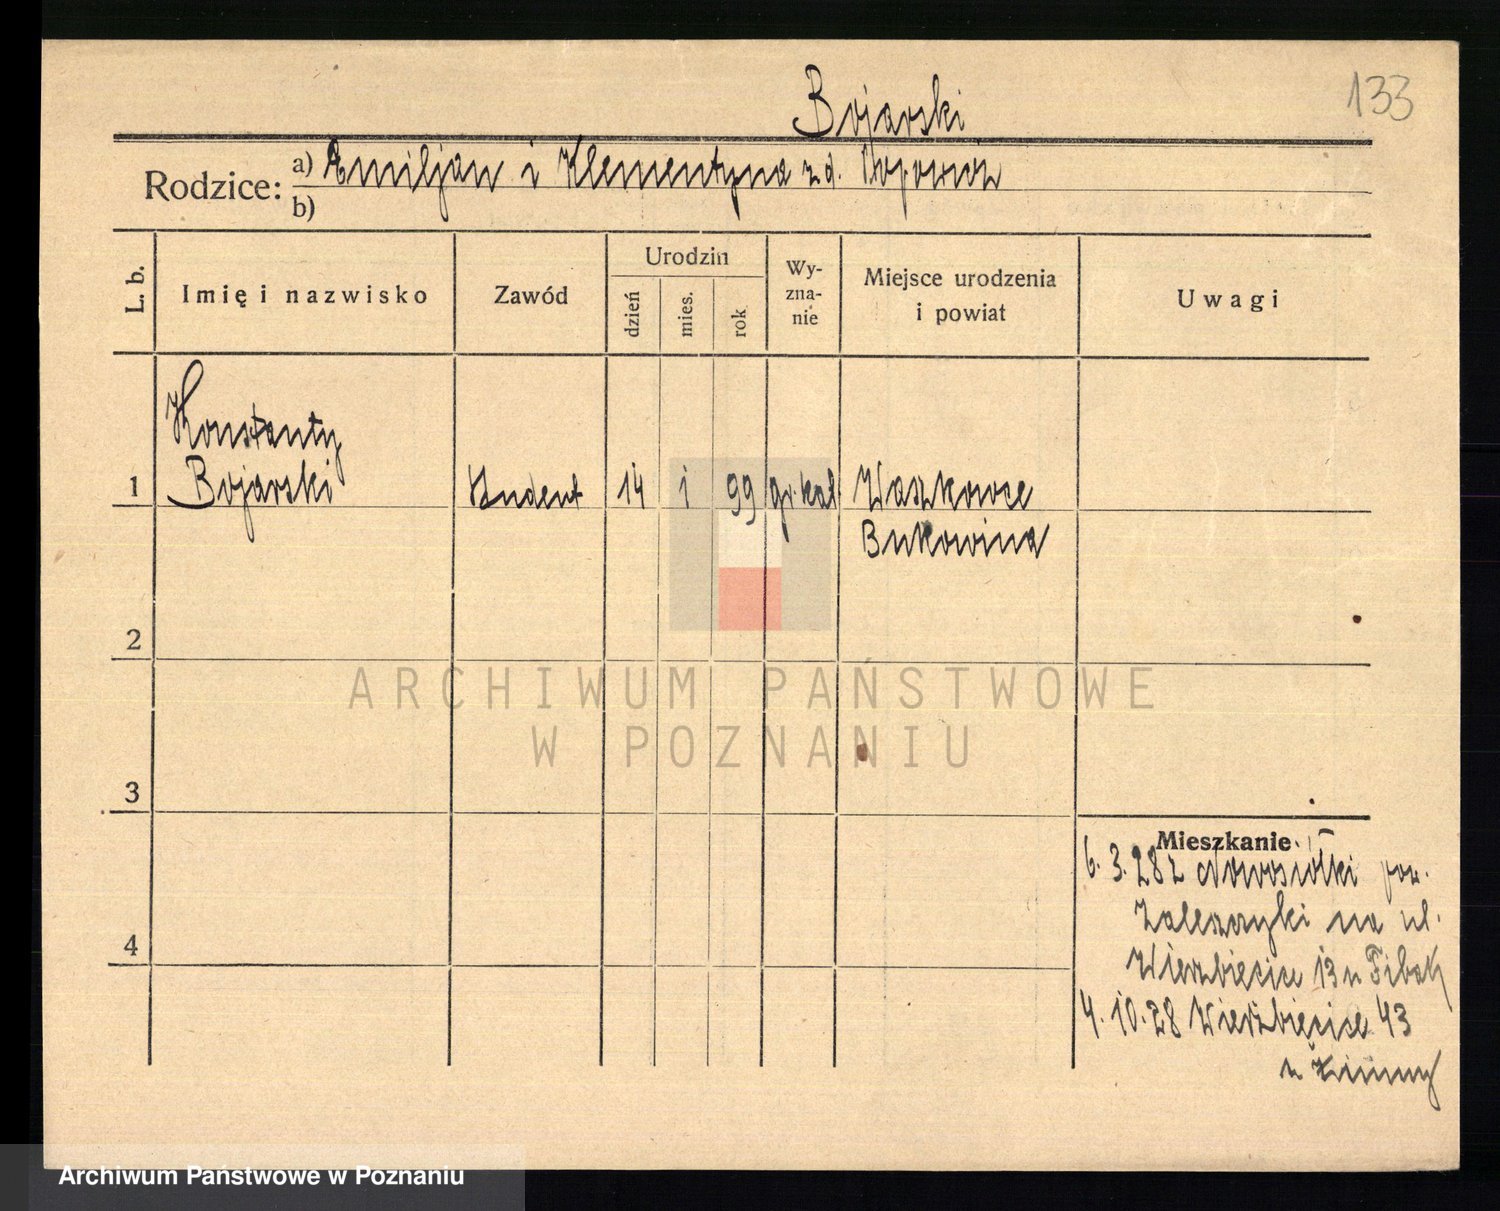 133
Bojarski
Rodzice: a) Emiljan i Klementyna z d.
b)
L. b.
Imię i nazwisko
Zawód
Urodzin
dzień
mies.
rok
Wy-
zna-
nie
Miejsce urodzenia
i powiat
Uwagi
Konstanty
1 Bojarski student 14 1 99 gr. kat. Waszkowce
Bukowina
2
3
4
Mieszkanie.
6. 3. 28 z Nowosiółki pow.
Zaleszczyki na ul.
Wierzbięcice 13 u Fibak
4. 10. 28 Wierzbięcice 43
u
ARCHIWUM PAŃSTWOWE
W POZNANIU
Archiwum Państwowe w Poznaniu